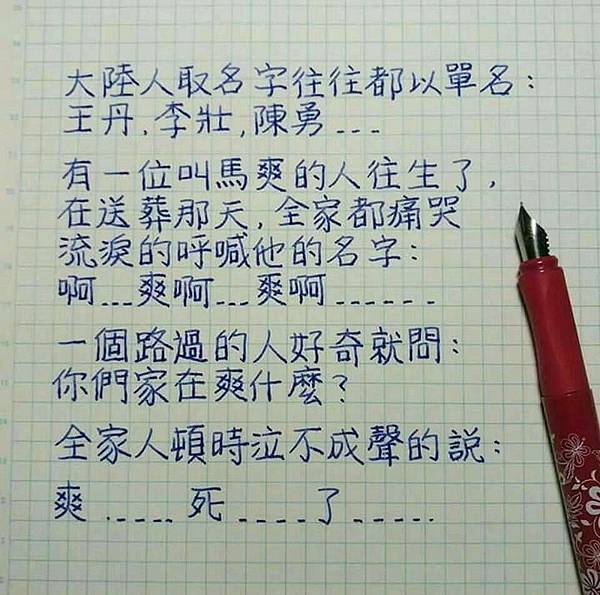 大陸人取名字往往都以單名:
王丹,李壯,陳勇---
有一位叫馬爽的人往生了,
在送葬那天,全家都痛哭
流淚的呼喊他的名字:
啊---爽啊---爽啊------
一個路過的人好奇就問:
你們家在爽什麼?
全家人頓時泣不成聲的說:
爽.----死----了-----.